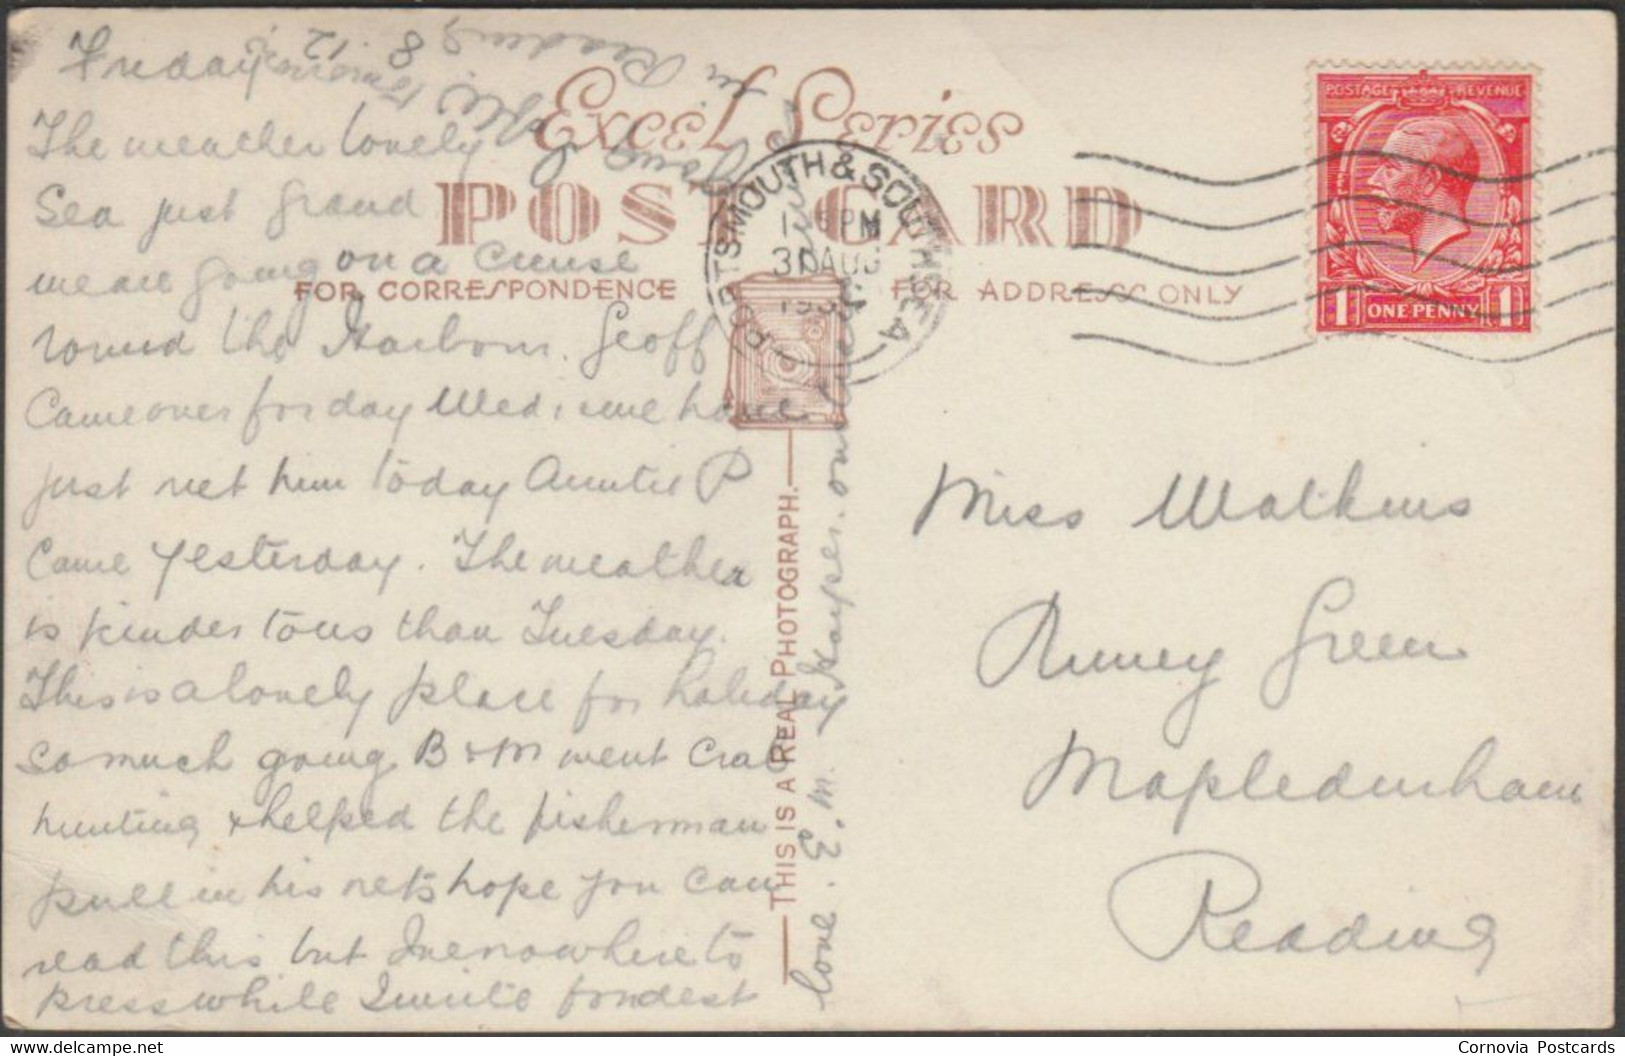 Friday
The weather lovely
Sea just grand
we are going on a Cruise
round the Harbour. Geoff
Came over for day Wed, we have
just met him today Auntie P
Came yesterday. The weather
is kinder to us than Tuesday.
This is a lovely place for holiday
so much going B & M went Crab
hunting & helped the fisherman
pull in his nets hope you can
read this but Ive nowhere to
press while I write fondest
love. E. M. Hayes.
in Reading
8 . 12
Excel Series
POST CARD
FOR CORRESPONDENCE
FOR ADDRESS ONLY
THIS IS A REAL PHOTOGRAPH.
PORTSMOUTH & SOUTHSEA
PM
31 AUG
POSTAGE REVENUE
1 ONE PENNY 1
Miss Watkins
Green
Mapledurham
Reading
Cornovia Postcards